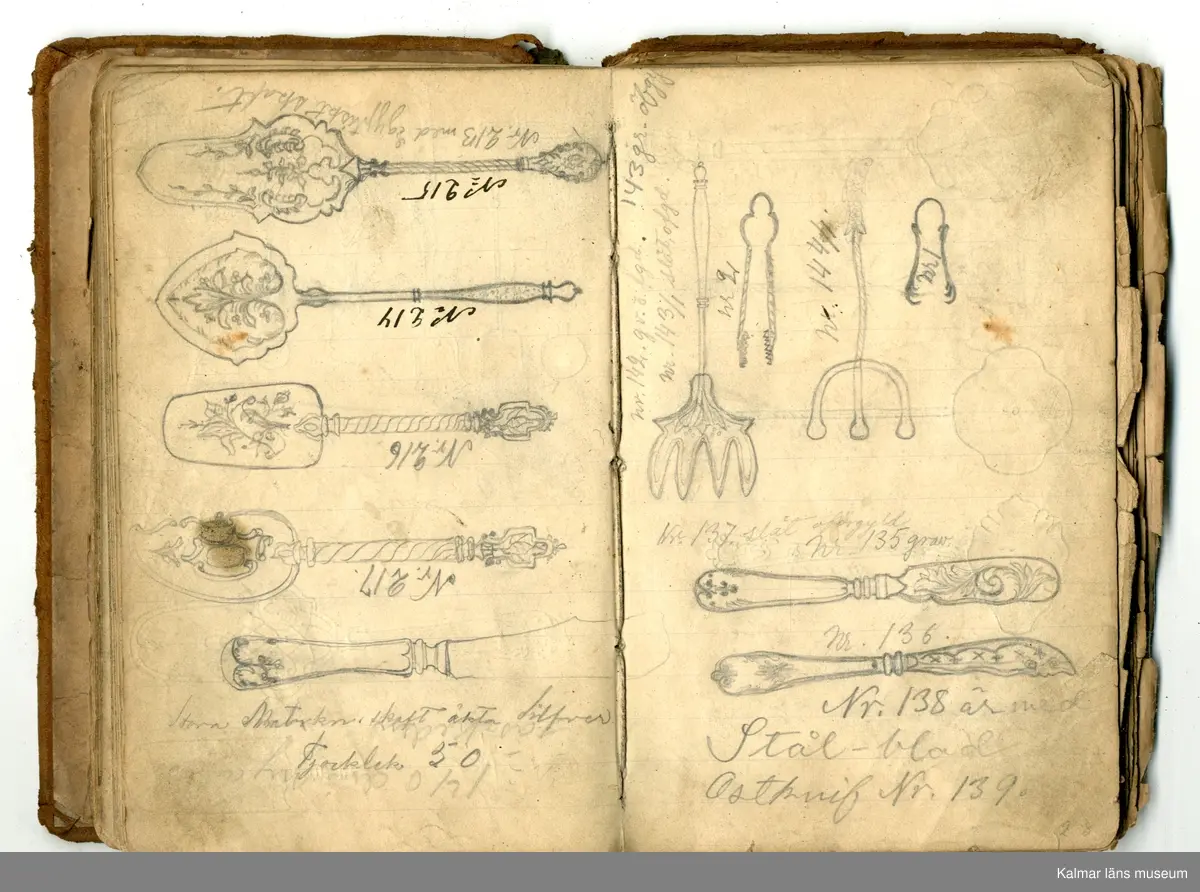 Nr. 213 med Egyptiskt skaft.
No 215
No 214
Nr. 216
Nr. 217
Stora Matskn. skaft äkta Silfver
Tjocklek 50
143 gr.
nr. 142. gr. o. fgd.
nr. 143 1/2 slät ofgd.
nr 2
nr. 144.
Nr. 137. slät oförgyld
Nr 135 grav.
Nr. 136.
Nr. 138 är med
Stål-blad
Ostknif Nr. 139.
Kalmar läns museum